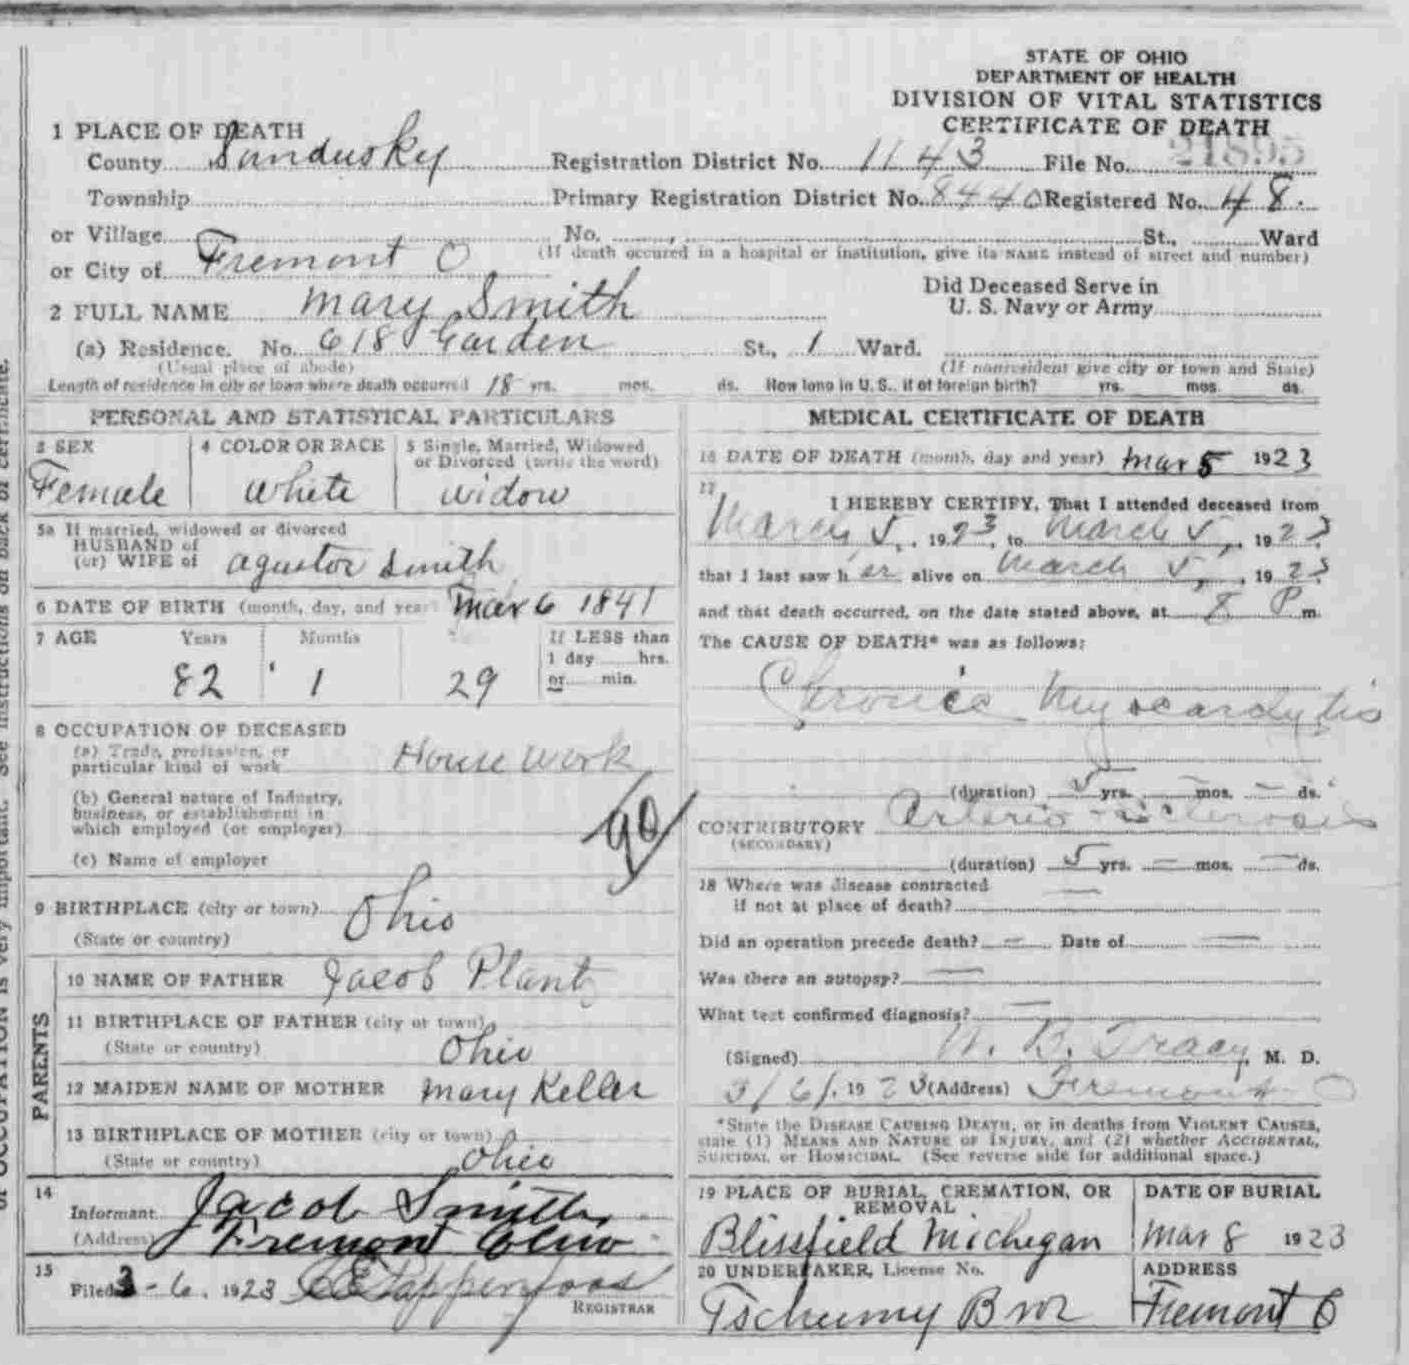 STATE OF OHIO
DEPARTMENT OF HEALTH
DIVISION OF VITAL STATISTICS
CERTIFICATE OF DEATH
1 PLACE OF DEATH
County Sandusky Registration District No. 1143 File No. 21895
Township Primary Registration District No. 8440 Registered No. 48.
or Village No. , St., Ward
or City of Fremont O (If death occured in a hospital or institution, give its NAME instead of street and number)
Did Deceased Serve in
U. S. Navy or Army
2 FULL NAME Mary Smith
(a) Residence. No. 618 Garden St., 1 Ward.
(Usual place of abode) (If nonresident give city or town and State)
Length of residence in city or town where death occurred 18 yrs. mos. ds. How long in U. S., if of foreign birth? yrs. mos. ds.
PERSONAL AND STATISTICAL PARTICULARS
3 SEX 4 COLOR OR RACE 5 Single, Married, Widowed
or Divorced (write the word)
Female white widow
5a If married, widowed or divorced
HUSBAND of
(or) WIFE of agustor Smith
6 DATE OF BIRTH (month, day, and year) Mar 6 1841
7 AGE Years Months If LESS than
1 day hrs.
82 1 29 or min.
8 OCCUPATION OF DECEASED
(a) Trade, profession, or
particular kind of work House Work
(b) General nature of Industry,
business, or establishment in
which employed (or employer)
90
(c) Name of employer
9 BIRTHPLACE (city or town) Ohio
(State or country)
PARENTS
10 NAME OF FATHER Jacob Plant
11 BIRTHPLACE OF FATHER (city or town)
(State or country) Ohio
12 MAIDEN NAME OF MOTHER Mary Keller
13 BIRTHPLACE OF MOTHER (city or town)
(State or country) Ohio
14
Informant Jacob Smith
(Address) Fremont Ohio
15
Filed 3-6, 1923
REGISTRAR
MEDICAL CERTIFICATE OF DEATH
16 DATE OF DEATH (month, day and year) Mar 5 1923
17
I HEREBY CERTIFY, That I attended deceased from
March 5, 1923, to March 5, 1923
that I last saw her alive on March 5, 1923
and that death occurred, on the date stated above, at 8 P m.
The CAUSE OF DEATH* was as follows:
Chronic Myocardytis
(duration) 5 yrs. — mos. — ds.
CONTRIBUTORY Arterio-sclerosis
(SECONDARY)
(duration) 5 yrs. — mos. — ds.
18 Where was disease contracted
if not at place of death? —
Did an operation precede death? — Date of —
Was there an autopsy? —
What test confirmed diagnosis? —
(Signed) W. B. Tracy, M. D.
3/6/, 1923 (Address) Fremont O
*State the DISEASE CAUSING DEATH, or in deaths from VIOLENT CAUSES,
state (1) MEANS AND NATURE OF INJURY, and (2) whether ACCIDENTAL,
SUICIDAL or HOMICIDAL. (See reverse side for additional space.)
19 PLACE OF BURIAL, CREMATION, OR
REMOVAL
DATE OF BURIAL
Blissfield Michegan Mar 8 1923
20 UNDERTAKER, License No. ADDRESS
Tschumy Bros Fremont O